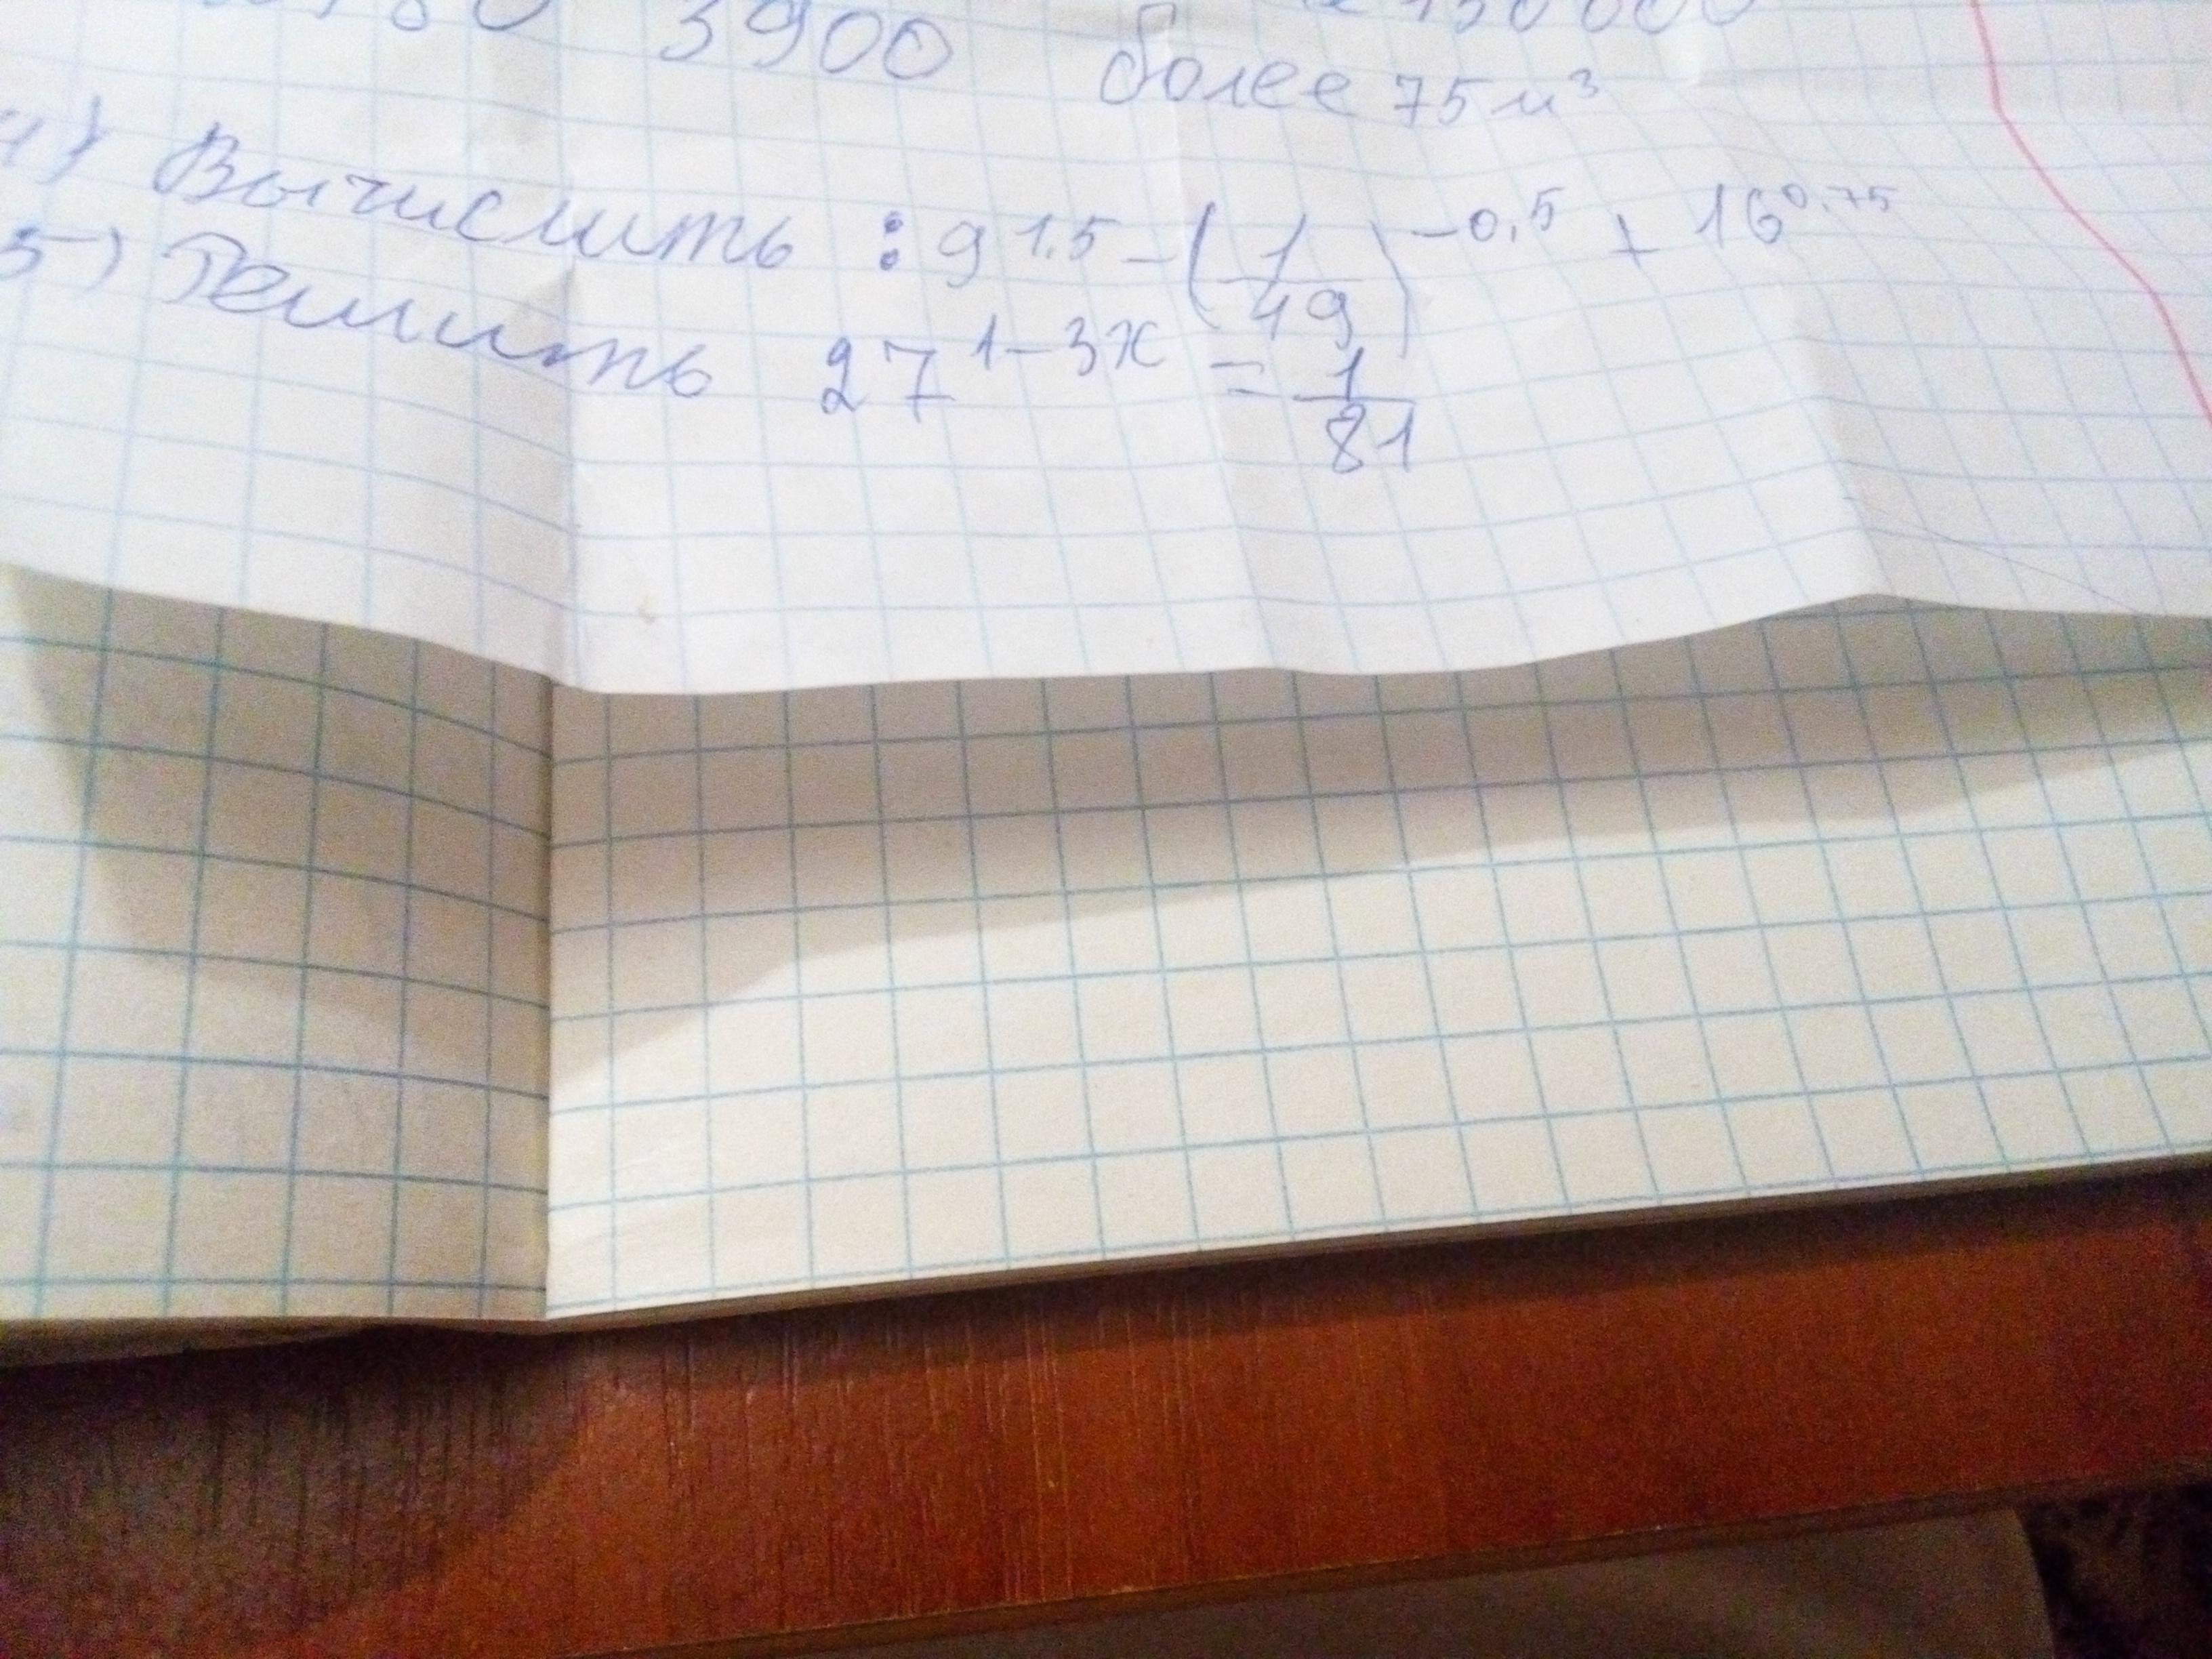 3900
более 75 м³
4) Вычислить : 9^1,5 - (1/49)^-0,5 + 16^0,75
5) Решить 27^1-3x = 1/81